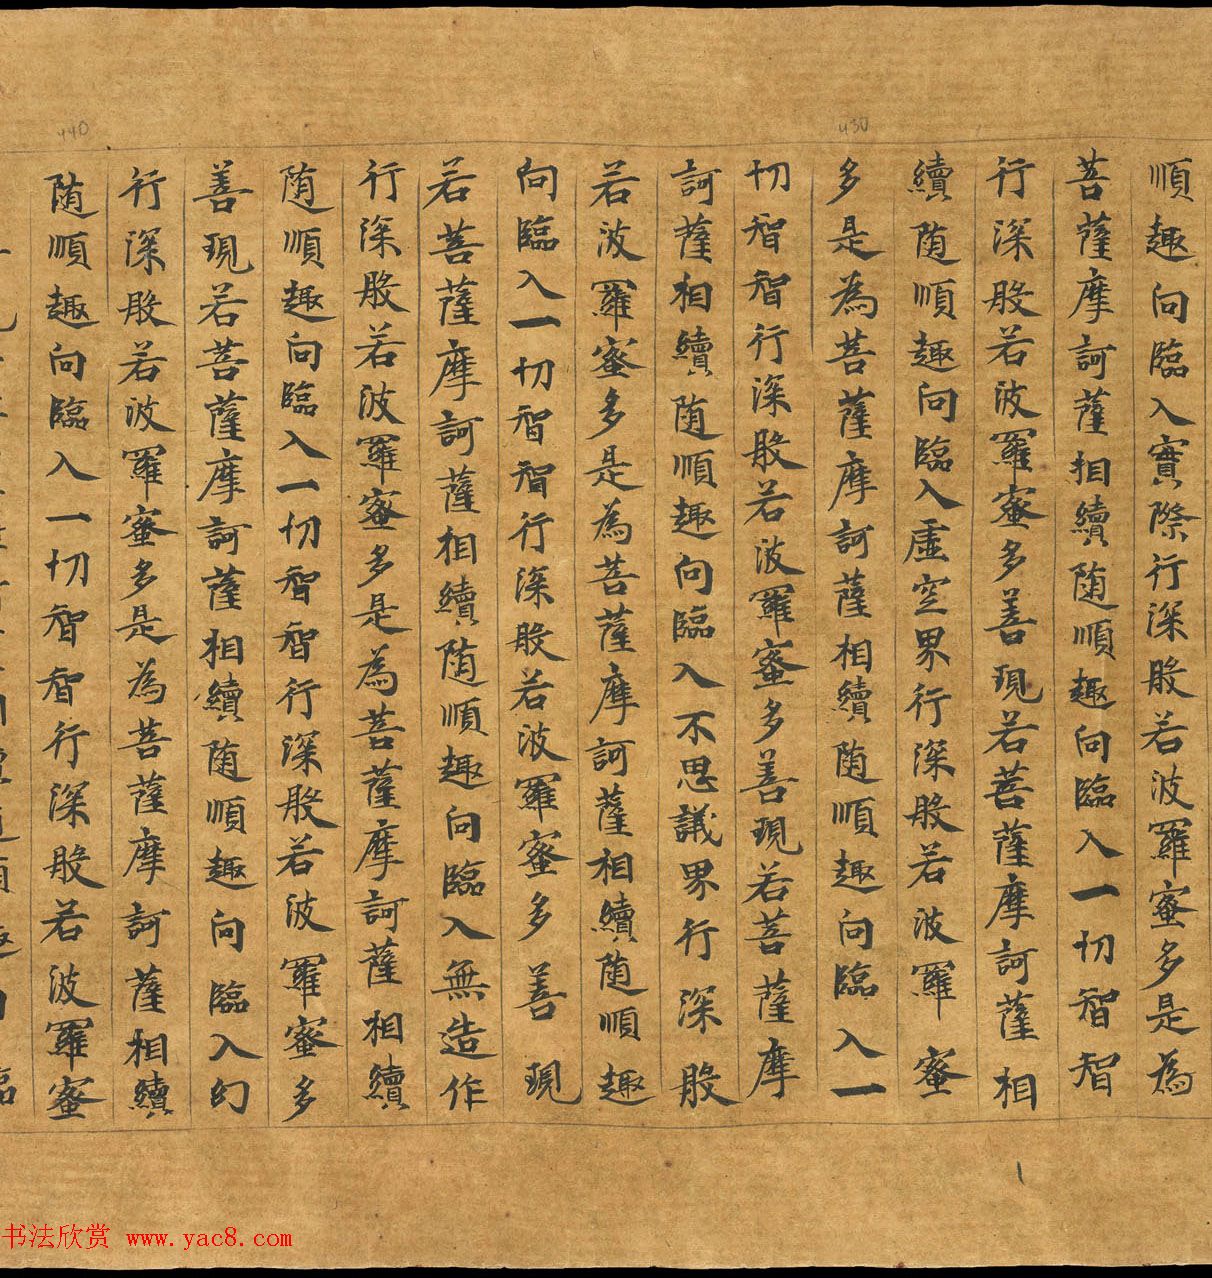 430
440
順趣向臨入實際行深般若波羅蜜多是為
菩薩摩訶薩相續随順趣向臨入一切智智
行深般若波羅蜜多善現若菩薩摩訶薩相
續随順趣向臨入虛空界行深般若波羅蜜
多是為菩薩摩訶薩相續随順趣向臨入一
切智智行深般若波羅蜜多善現若菩薩摩
訶薩相續随順趣向臨入不思議界行深般
若波羅蜜多是為菩薩摩訶薩相續随順趣
向臨入一切智智行深般若波羅蜜多善現
若菩薩摩訶薩相續随順趣向臨入無造作
行深般若波羅蜜多是為菩薩摩訶薩相續
随順趣向臨入一切智智行深般若波羅蜜多
善現若菩薩摩訶薩相續随順趣向臨入幻
行深般若波羅蜜多是為菩薩摩訶薩相續
随順趣向臨入一切智智行深般若波羅蜜
书法欣赏 www.yac8.com